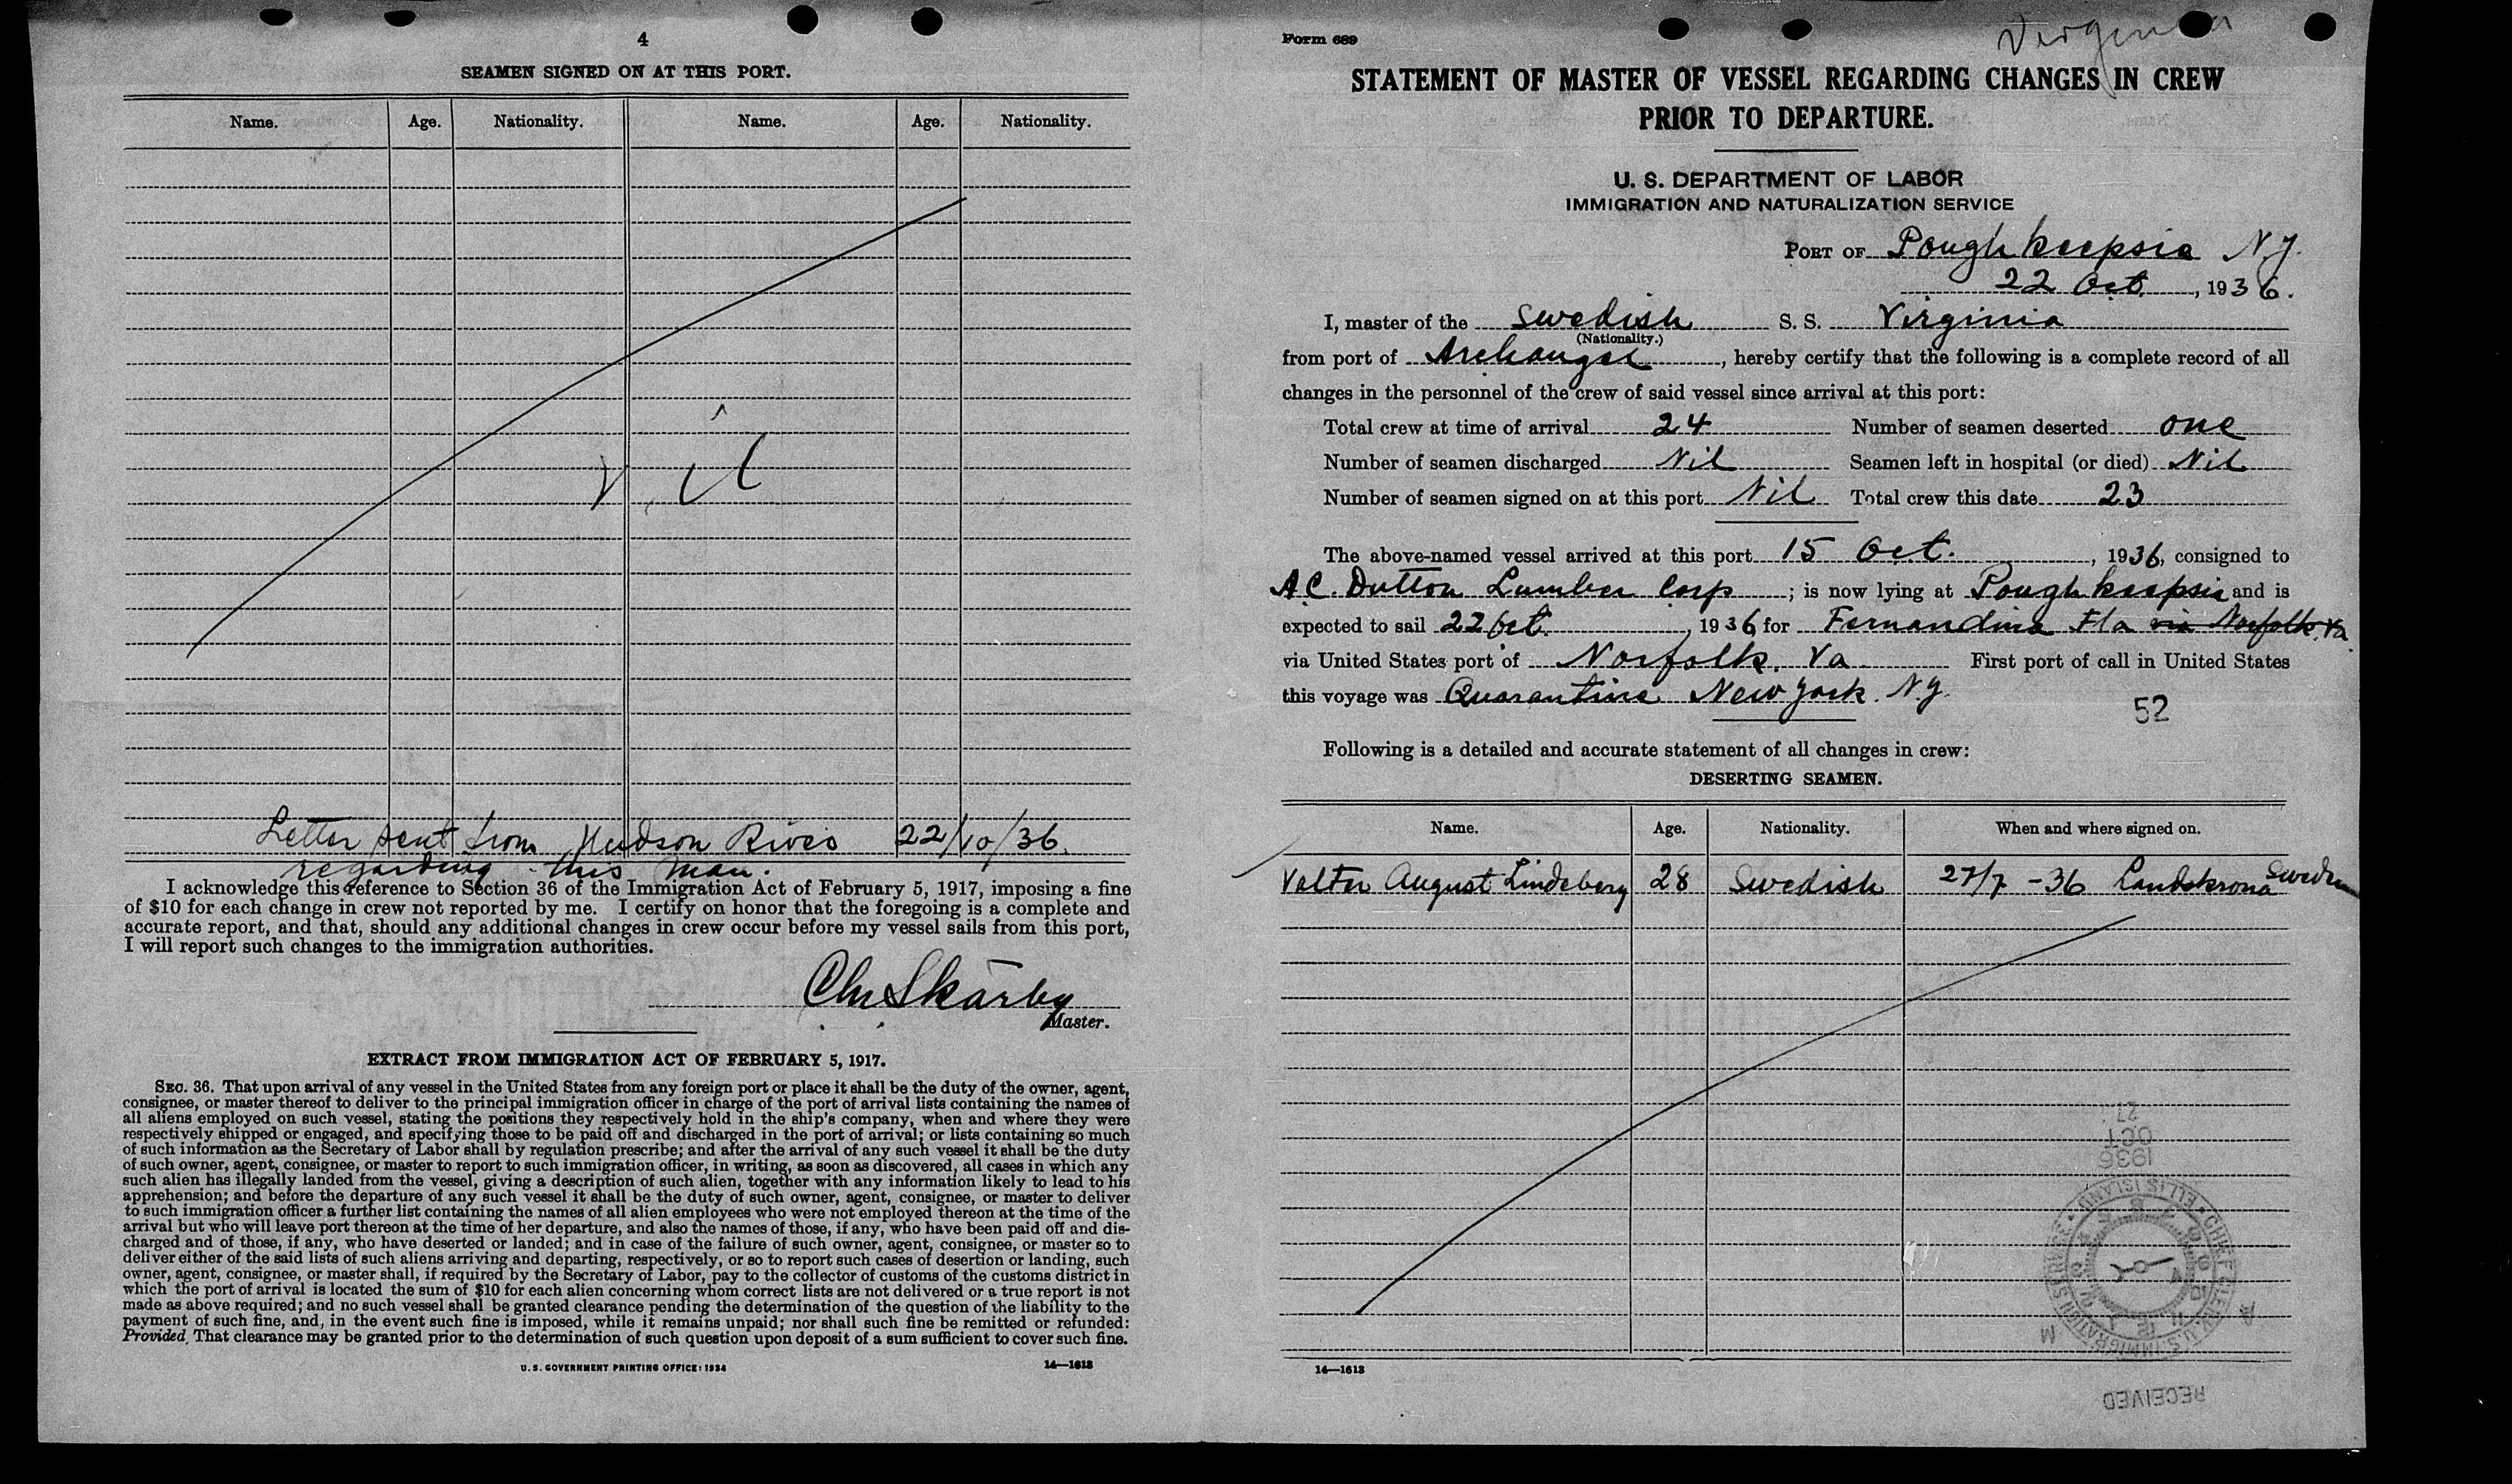 4
SEAMEN SIGNED ON AT THIS PORT.
Name. Age. Nationality. Name. Age. Nationality.
Letter sent from Hudson River 22/10/36.
regarding this man.
I acknowledge this reference to Section 36 of the Immigration Act of February 5, 1917, imposing a fine
of $10 for each change in crew not reported by me. I certify on honor that the foregoing is a complete and
accurate report, and that, should any additional changes in crew occur before my vessel sails from this port,
I will report such changes to the immigration authorities.
Chr Skarby
Master.
EXTRACT FROM IMMIGRATION ACT OF FEBRUARY 5, 1917.
SEC. 36. That upon arrival of any vessel in the United States from any foreign port or place it shall be the duty of the owner, agent,
consignee, or master thereof to deliver to the principal immigration officer in charge of the port of arrival lists containing the names of
all aliens employed on such vessel, stating the positions they respectively hold in the ship's company, when and where they were
respectively shipped or engaged, and specifying those to be paid off and discharged in the port of arrival; or lists containing so much
of such information as the Secretary of Labor shall by regulation prescribe; and after the arrival of any such vessel it shall be the duty
of such owner, agent, consignee, or master to report to such immigration officer, in writing, as soon as discovered, all cases in which any
such alien has illegally landed from the vessel, giving a description of such alien, together with any information likely to lead to his
apprehension; and before the departure of any such vessel it shall be the duty of such owner, agent, consignee, or master to deliver
to such immigration officer a further list containing the names of all alien employees who were not employed thereon at the time of the
arrival but who will leave port thereon at the time of her departure, and also the names of those, if any, who have been paid off and dis-
charged and of those, if any, who have deserted or landed; and in case of the failure of such owner, agent, consignee, or master so to
deliver either of the said lists of such aliens arriving and departing, respectively, or so to report such cases of desertion or landing, such
owner, agent, consignee, or master shall, if required by the Secretary of Labor, pay to the collector of customs of the customs district in
which the port of arrival is located the sum of $10 for each alien concerning whom correct lists are not delivered or a true report is not
made as above required; and no such vessel shall be granted clearance pending the determination of the question of the liability to the
payment of such fine, and, in the event such fine is imposed, while it remains unpaid; nor shall such fine be remitted or refunded:
Provided, That clearance may be granted prior to the determination of such question upon deposit of a sum sufficient to cover such fine.
U. S. GOVERNMENT PRINTING OFFICE: 1934 14—1613
Form 689
Virginia
STATEMENT OF MASTER OF VESSEL REGARDING CHANGES IN CREW
PRIOR TO DEPARTURE.
U. S. DEPARTMENT OF LABOR
IMMIGRATION AND NATURALIZATION SERVICE
PORT OF Poughkeepsie N.Y.
22 Oct. , 1936.
I, master of the Swedish S. S. Virginia
(Nationality.)
from port of Archangel , hereby certify that the following is a complete record of all
changes in the personnel of the crew of said vessel since arrival at this port:
Total crew at time of arrival 24 Number of seamen deserted one
Number of seamen discharged Nil Seamen left in hospital (or died) Nil
Number of seamen signed on at this port Nil Total crew this date 23
The above-named vessel arrived at this port 15 Oct. , 1936, consigned to
A.C. Dutton Lumber Corp ; is now lying at Poughkeepsie and is
expected to sail 22 Oct. , 1936, for Fernandina Fla via Norfolk, Va
via United States port of Norfolk, Va First port of call in United States
this voyage was Quarantine New York. N.Y.
52
Following is a detailed and accurate statement of all changes in crew:
DESERTING SEAMEN.
Name. Age. Nationality. When and where signed on.
Valter August Lindeberg 28 Swedish 27/7 -36 Landskrona Sweden
27
OCT
1936
14—1613
RECEIVED